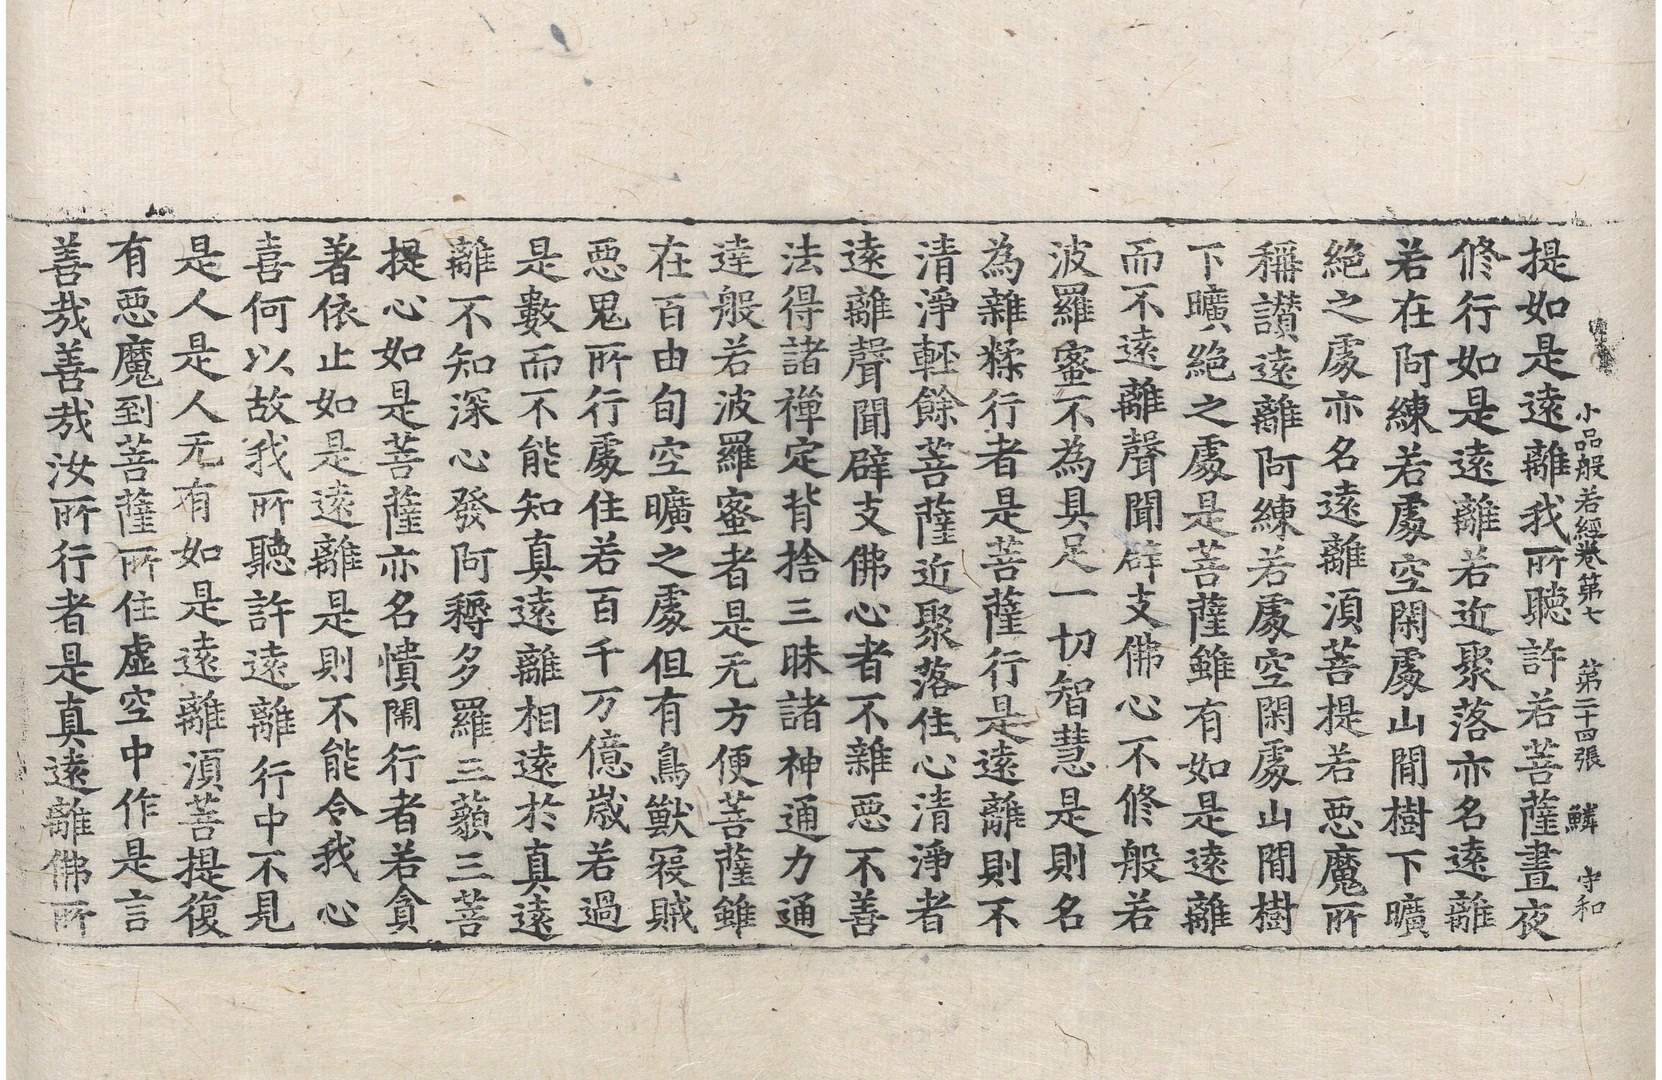 小品般若經卷第七 第二十四張 鱗 守和
提如是遠離我所聽許若菩薩晝夜
修行如是遠離若近聚落亦名遠離
若在阿練若處空閑處山間樹下曠
絶之處亦名遠離須菩提若惡魔所
稱讃遠離阿練若處空閑處山間樹
下曠絶之處是菩薩雖有如是遠離
而不遠離聲聞辟支佛心不修般若
波羅蜜不為具足一切智慧是則名
為雜糅行者是菩薩行是遠離則不
清淨輕餘菩薩近聚落住心清淨者
遠離聲聞辟支佛心者不雜惡不善
法得諸禪定背捨三昧諸神通力通
達般若波羅蜜者是无方便菩薩雖
在百由旬空曠之處但有鳥獸寇賊
惡鬼所行處住若百千万億歲若過
是數而不能知真遠離相遠於真遠
離不知深心發阿耨多羅三藐三菩
提心如是菩薩亦名憒閙行者若貪
著依止如是遠離是則不能令我心
喜何以故我所聽許遠離行中不見
是人是人无有如是遠離須菩提復
有惡魔到菩薩所住虛空中作是言
善哉善哉汝所行者是真遠離佛所